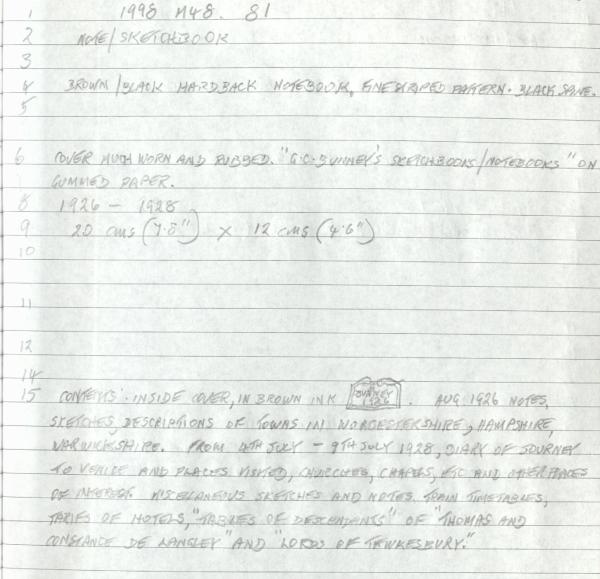 1 1998 M48. 81
2 NOTE/SKETCHBOOK
3
4 BROWN/BLACK HARDBACK NOTEBOOK, FINE STRIPED PATTERN. BLACK SPINE.
5
6 COVER MUCH WORN AND RUBBED. "G.C. BUNNEY'S SKETCHBOOKS/NOTEBOOKS" ON
GUMMED PAPER.
8 1926 - 1928
9 20 cms (7.8") x 12 cms (4.6")
10
11
12
14
15 CONTENTS: INSIDE COVER, IN BROWN INK BUNNEY 1926. AUG 1926 NOTES,
SKETCHES, DESCRIPTIONS OF TOWNS IN WORCESTERSHIRE, HAMPSHIRE,
WARWICKSHIRE. FROM 4TH JULY - 9TH JULY 1928, DIARY OF JOURNEY
TO VENICE AND PLACES VISITED, CHURCHES, CHAPELS, ETC AND OTHER PLACES
OF INTEREST. MISCELLANEOUS SKETCHES AND NOTES. TRAIN TIMETABLES,
TARIFS OF HOTELS, "TABLES OF DESCENDENTS" OF "THOMAS AND
CONSTANCE DE LANGLEY" AND "LORDS OF TEWKESBURY."